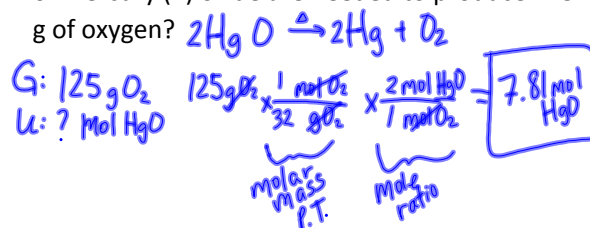 g of oxygen? 2HgO →Δ 2Hg + O₂
G: 125 g O₂
U: ? mol HgO
125 g O₂ × 1 mol O₂ / 32 g O₂ × 2 mol HgO / 1 mol O₂ = 7.81 mol HgO
molar mass P.T.
mole ratio